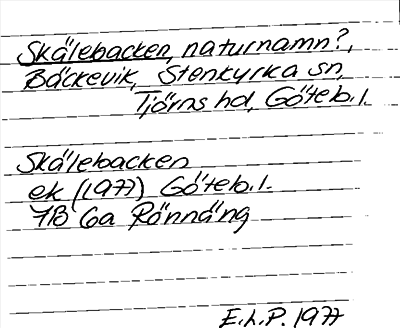 Skälebacken, naturnamn?,
Bäckevik, Stenkyrka sn,
Tjörns hd, Göteb. l.
Skälebacken
ek (1977) Göteb. l.
7B 6a Rönnäng
E.L.P. 1977